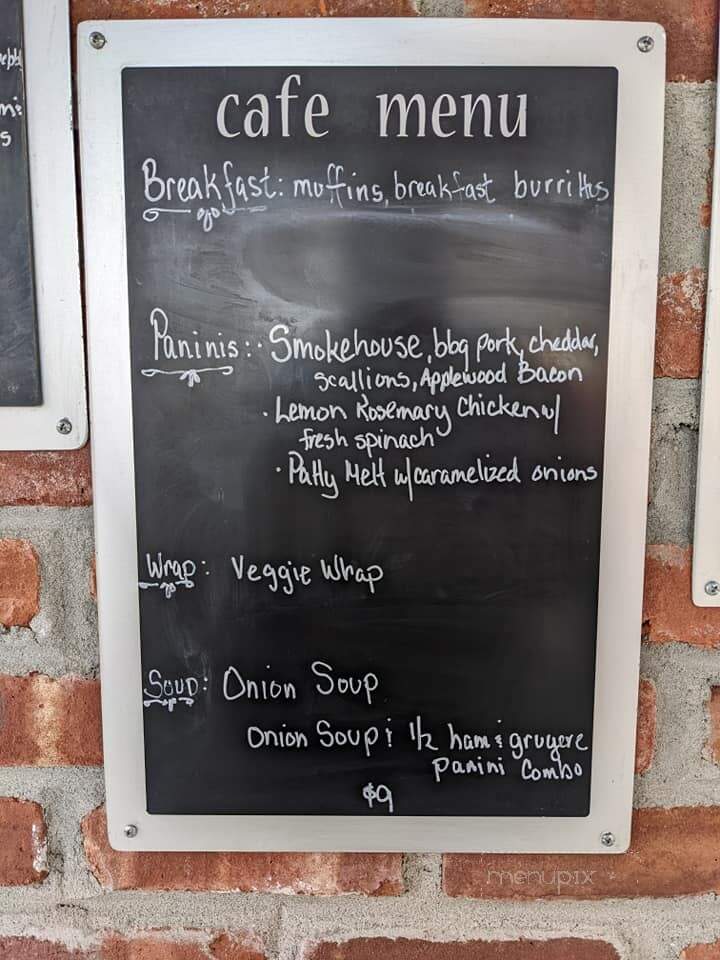 cafe menu
Breakfast: muffins, breakfast burrittos
Paninis: · Smokehouse, bbq pork, cheddar,
scallions, Applewood Bacon
· Lemon Rosemary Chicken w/
fresh spinach
· Patty Melt w/caramelized onions
Wrap: Veggie Wrap
Soup: Onion Soup
Onion Soup & 1/2 ham & gruyere
panini Combo
$9
menupix